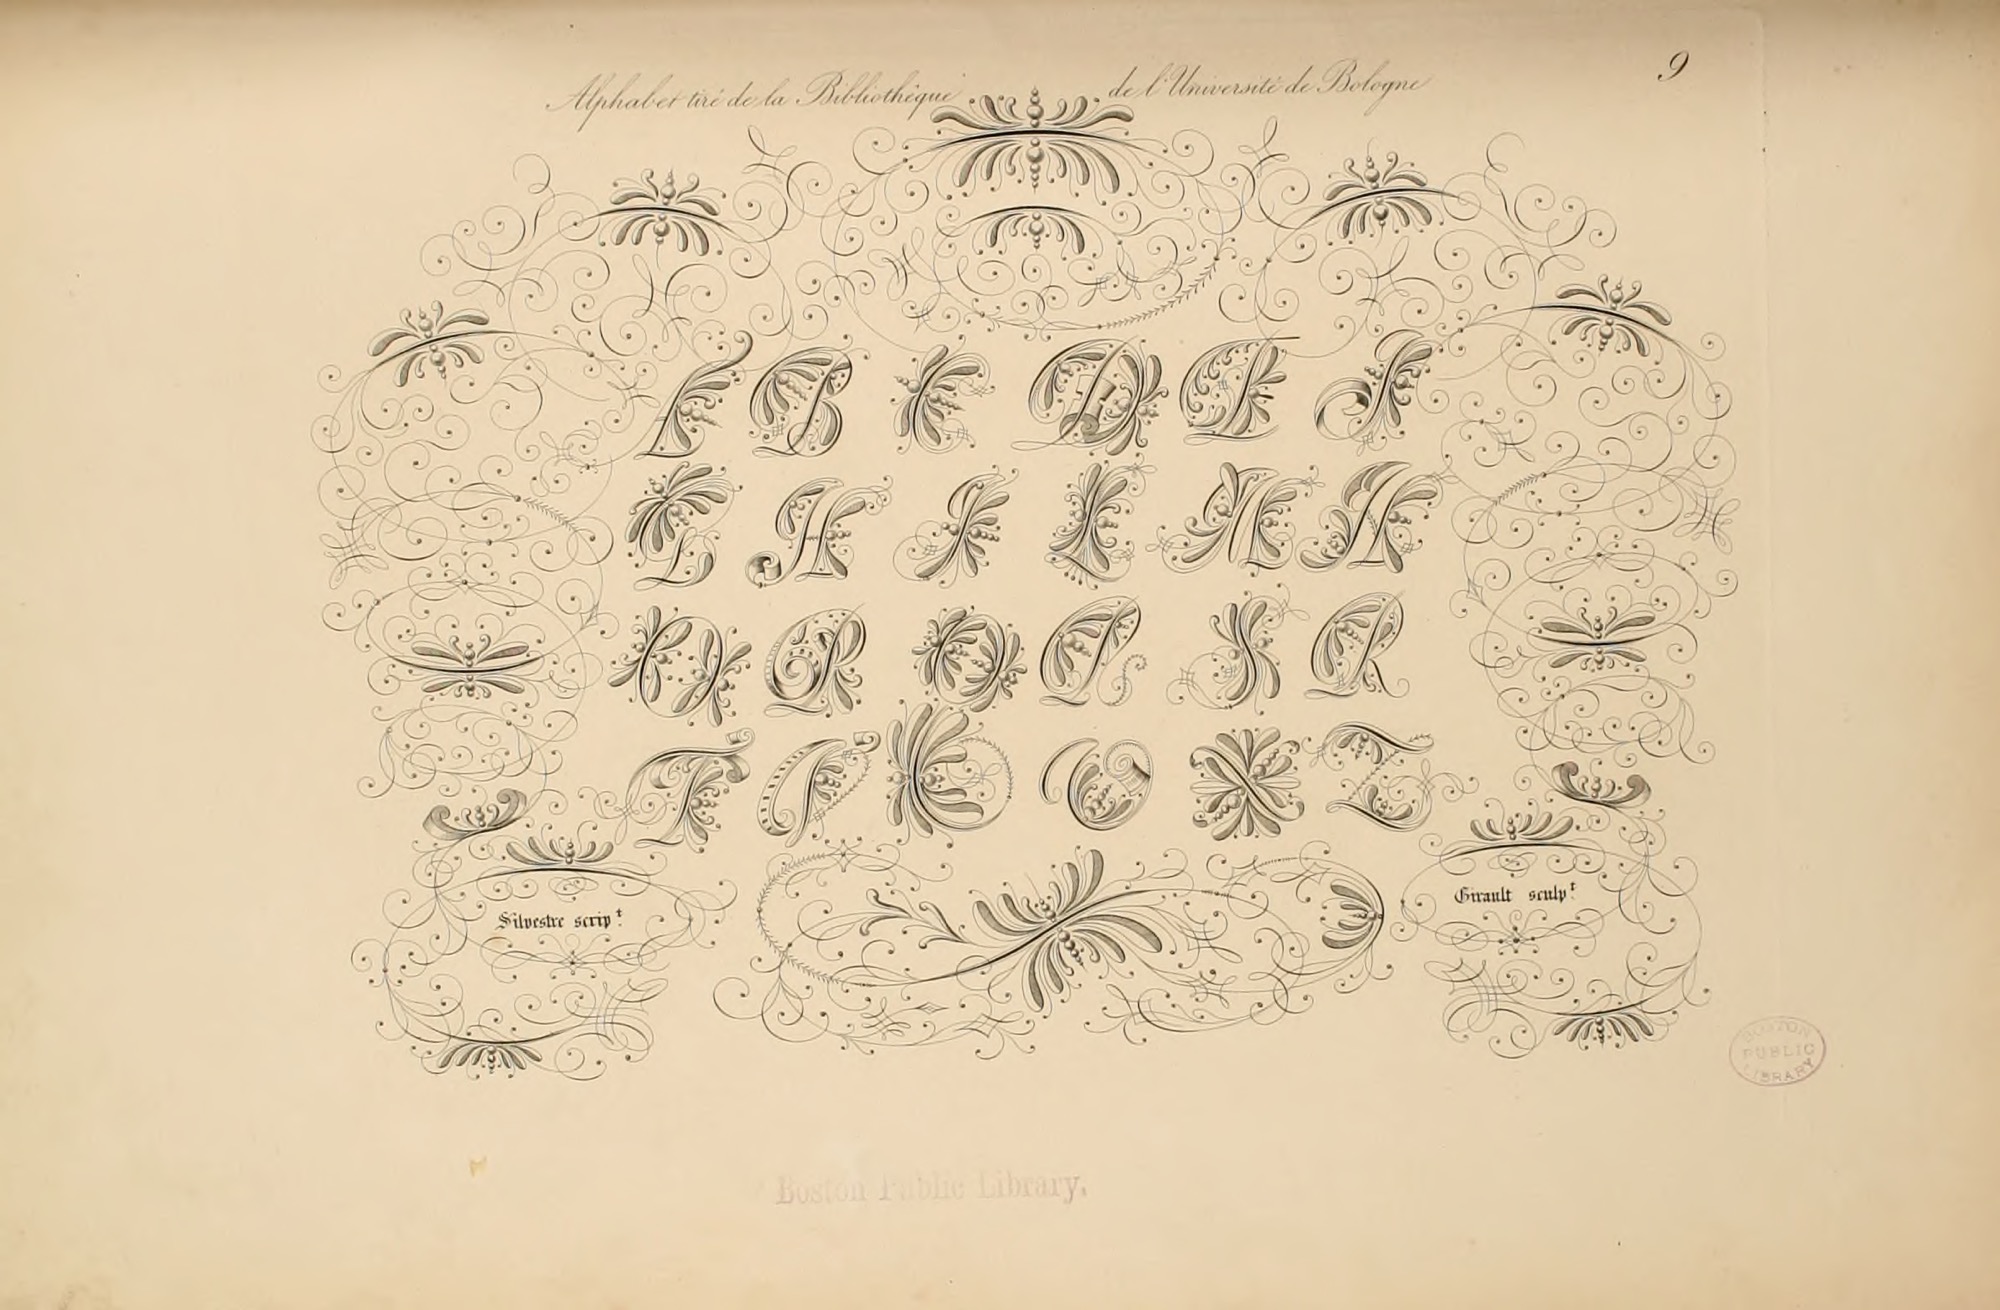 9
Alphabet tiré de la Bibliothèque de l'Université de Bologne
A B C D E F
G H I L M N
O P Q R S R
T X Z
Silvestre scrip.t
Girault sculp.t
BOSTON
PUBLIC
LIBRARY
Boston Public Library.